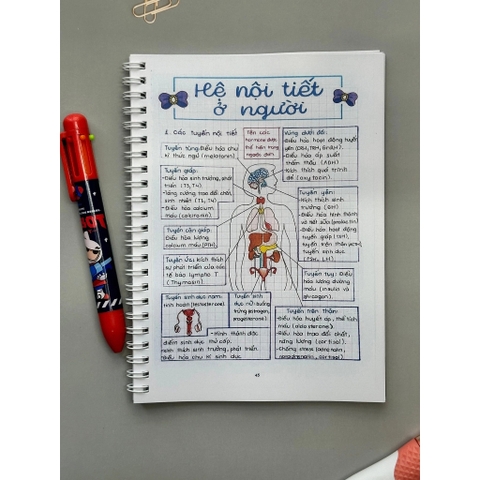 Hệ nội tiết
ở người
1. Các tuyến nội tiết
Tên các
hormone được
thể hiện trong
ngoặc đơn
Vùng dưới đồi:
-Điều hòa hoạt động tuyến
yên (CRH, TRH, GnRH).
-Điều hòa áp suất
thẩm thấu (ADH)
-Kích thích quá trình
đẻ (oxytocin)
Tuyến tùng: Điều hòa chu
kì thức ngủ (melatonin).
Tuyến giáp:
-Điều hòa sinh trưởng, phát
triển (T3, T4)
-Tăng cường trao đổi chất,
sinh nhiệt (T3, T4)
-Điều hòa calcium
máu (calcitonin).
Tuyến yên:
-Kích thích sinh
trưởng (GH)
-Điều hòa hình thành
và tiết sữa (prolactin)
-Điều hòa hoạt động
tuyến giáp (TSH),
tuyến trên thận (ACTH)
tuyến sinh dục
(FSH, LH).
Tuyến cận giáp:
Điều hòa lượng
calcium máu (PTH).
Tuyến ức: kích thích
sự phát triển của các
tế bào lympho T
(Thymosin)
Tuyến tụy: Điều
hòa lượng đường
máu (insulin và
glucagon).
Tuyến sinh dục nam:
tinh hoàn (testosterone)
Tuyến sinh
dục nữ: buồng
trứng (estrogen,
progesterone)
-Hình thành đặc
điểm sinh dục thứ cấp.
-Kích thích sinh trưởng, phát triển
-Điều hòa chu kì sinh dục
Tuyến trên thận:
-Điều hòa huyết áp, thể tích
máu (aldosterone).
-Điều hòa trao đổi chất,
năng lượng (cortisol).
-Chống stress (adrenalin,
noradrenalin, cortisol).
45